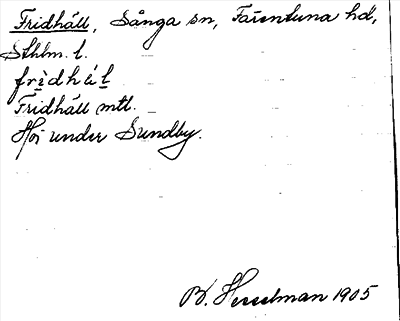 Fridhäll, Sånga sn, Färentuna hd,
Sthlm. l.
fridhäl
Fridhäll mtl.
Hör under Sundby.
B. Hesselman 1905